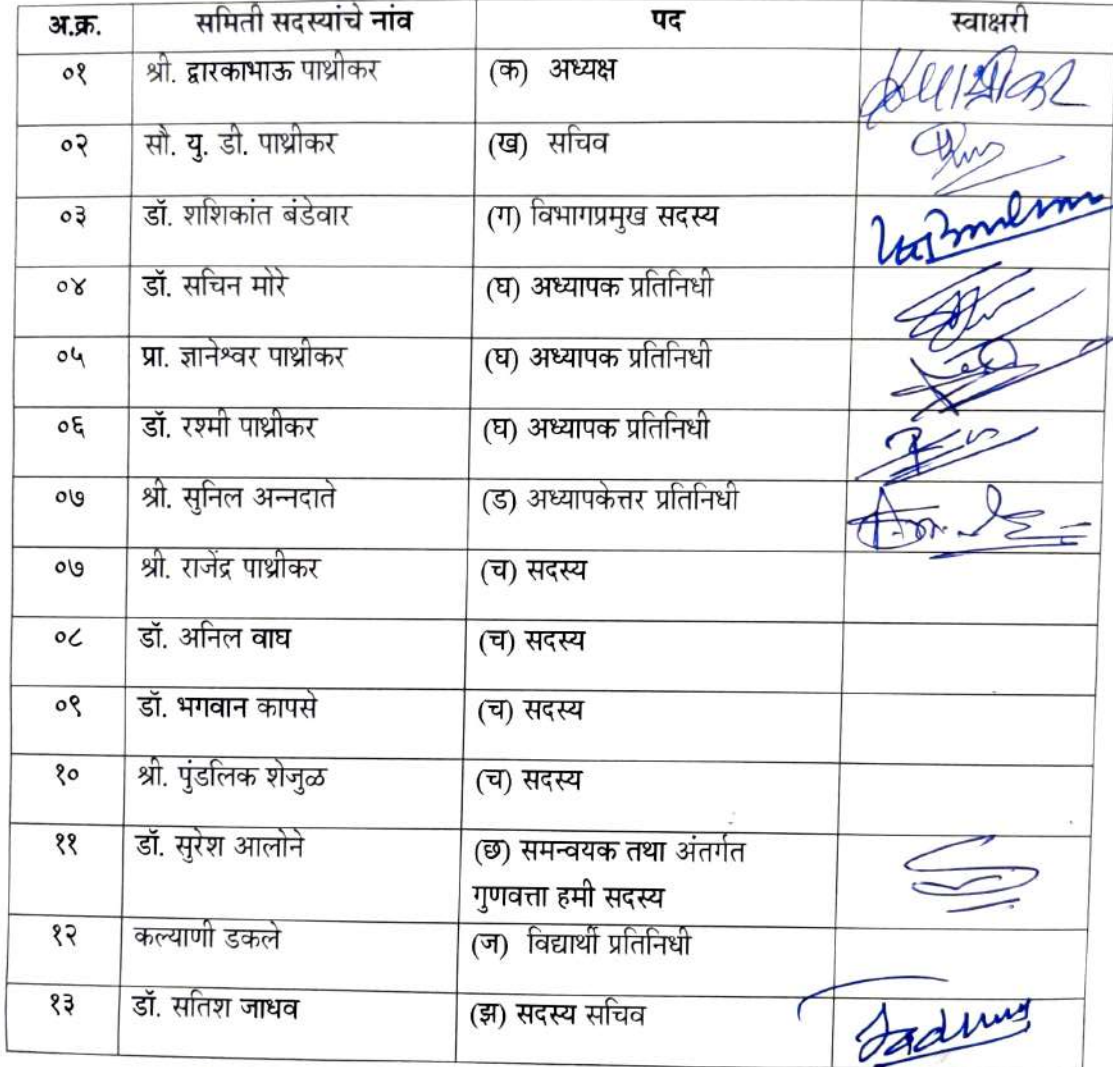 अ.क्र. समिती सदस्यांचे नांव पद स्वाक्षरी
०१ श्री. द्वारकाभाऊ पाथ्रीकर (क) अध्यक्ष
०२ सौ. यु. डी. पाथ्रीकर (ख) सचिव
०३ डॉ. शशिकांत बंडेवार (ग) विभागप्रमुख सदस्य
०४ डॉ. सचिन मोरे (घ) अध्यापक प्रतिनिधी
०५ प्रा. ज्ञानेश्वर पाथ्रीकर (घ) अध्यापक प्रतिनिधी
०६ डॉ. रश्मी पाथ्रीकर (घ) अध्यापक प्रतिनिधी
०७ श्री. सुनिल अन्नदाते (ड) अध्यापकेत्तर प्रतिनिधी
०७ श्री. राजेंद्र पाथ्रीकर (च) सदस्य
०८ डॉ. अनिल वाघ (च) सदस्य
०९ डॉ. भगवान कापसे (च) सदस्य
१० श्री. पुंडलिक शेजुळ (च) सदस्य
११ डॉ. सुरेश आलोने (छ) समन्वयक तथा अंतर्गत
गुणवत्ता हमी सदस्य
१२ कल्याणी डकले (ज) विद्यार्थी प्रतिनिधी
१३ डॉ. सतिश जाधव (झ) सदस्य सचिव